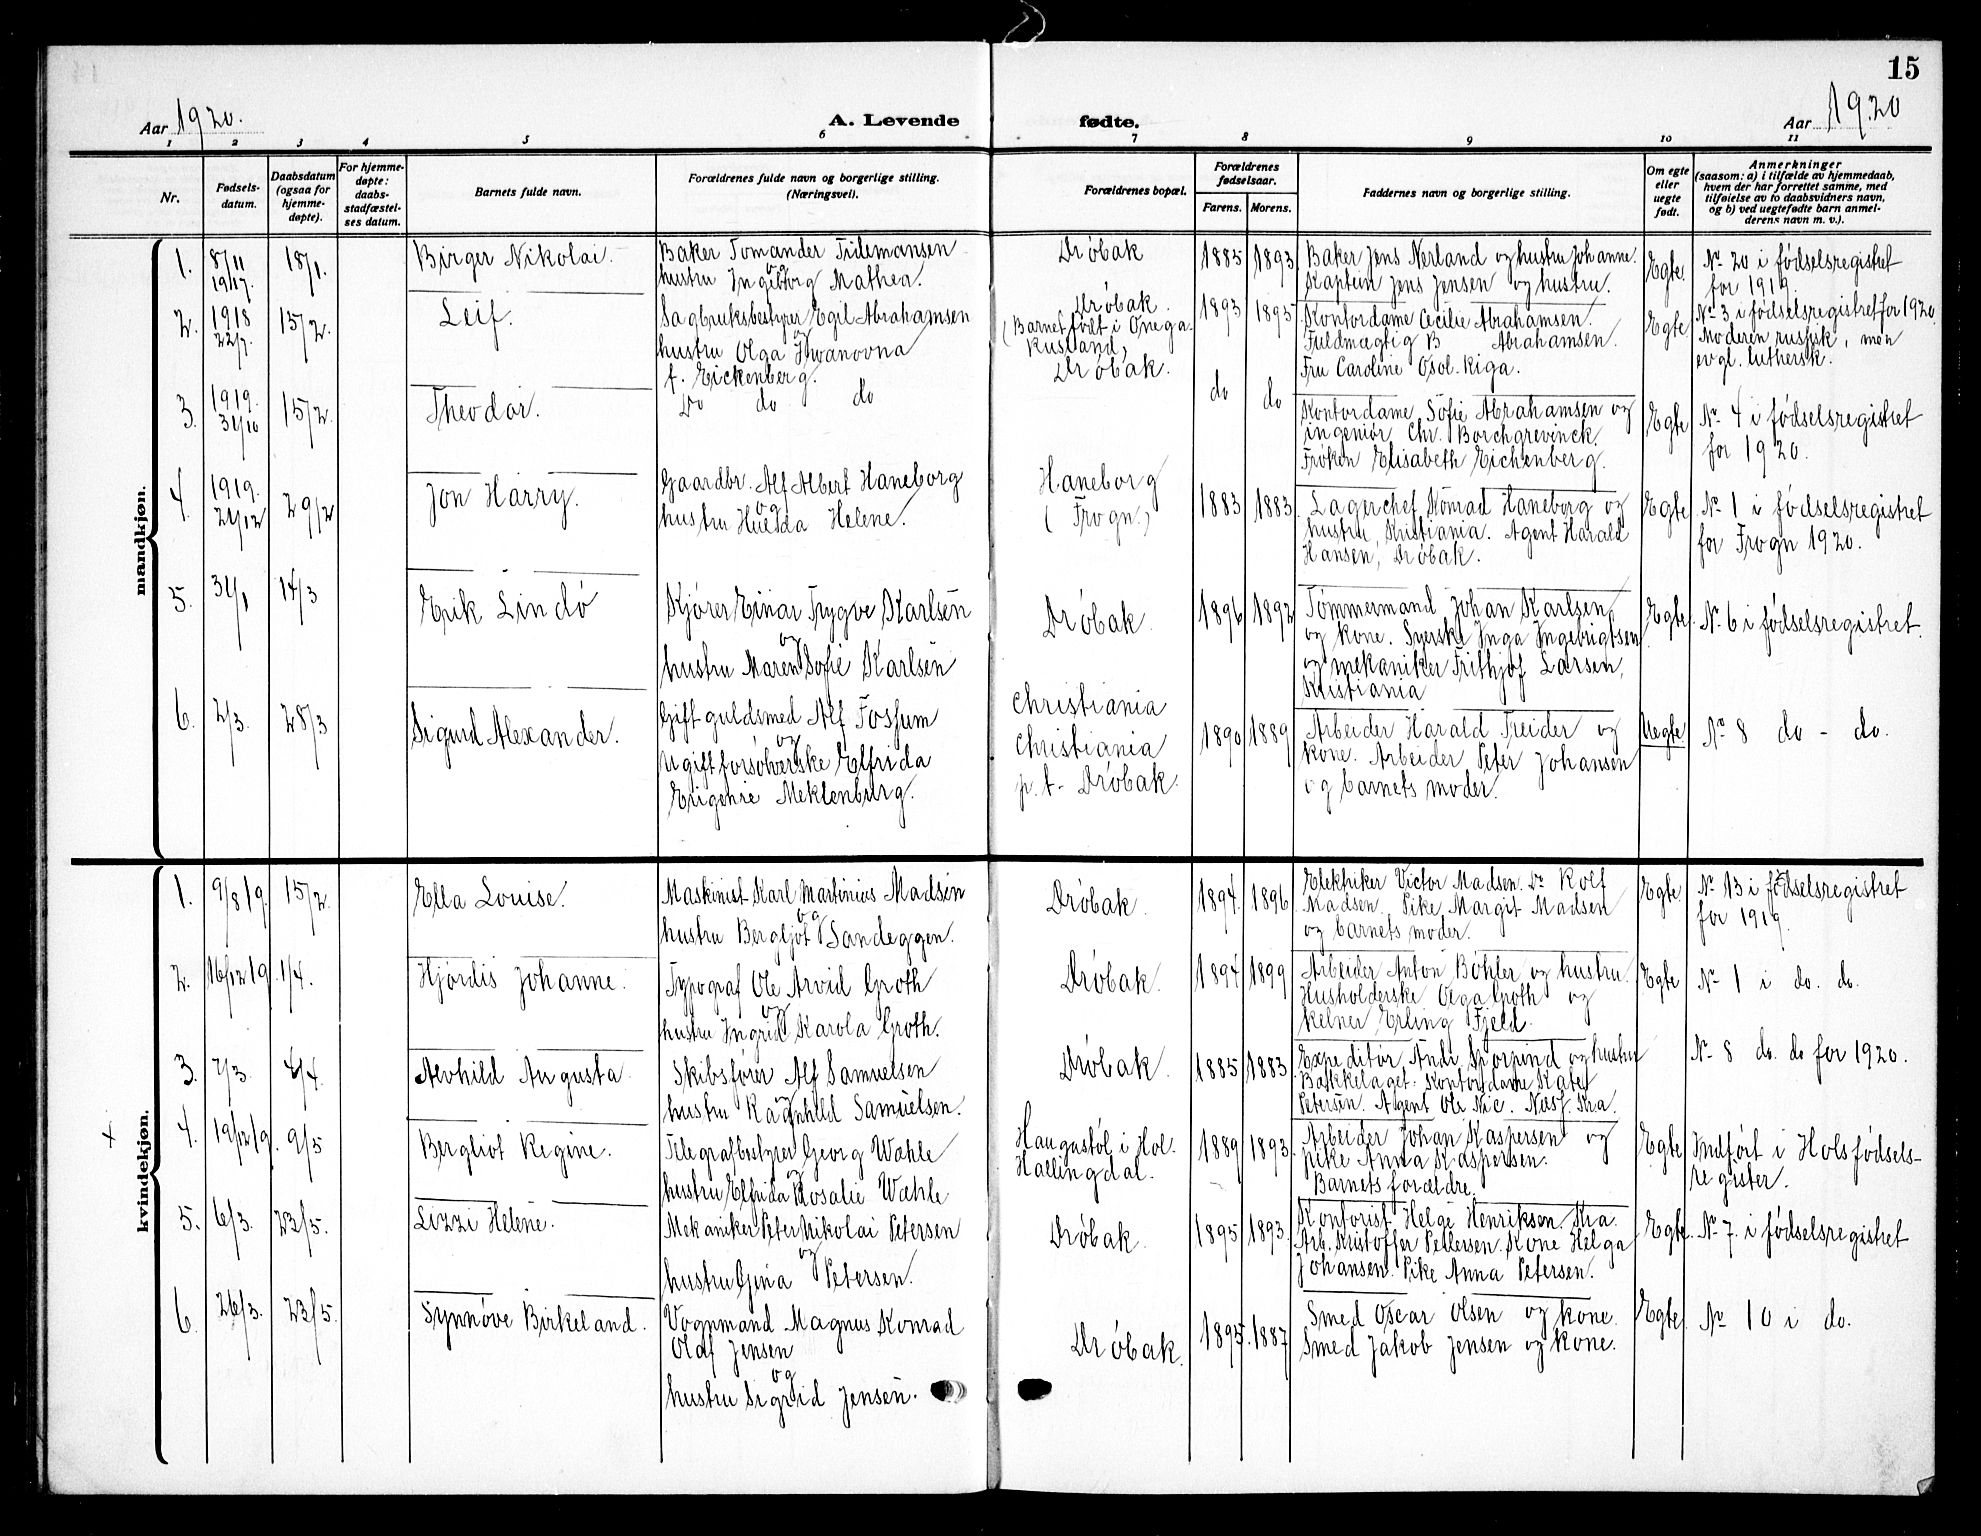 15
Aar 1920.
A. Levende
fødte.
Aar 1920
1 2 3 4 5 6 7 8 9 10 11
Nr.
Fødsels-
datum.
Daabsdatum
(ogsaa for
hjemme-
døpte).
For hjemme-
døpte:
daabs-
stadfæstel-
ses datum.
Barnets fulde navn.
Forældrenes fulde navn og borgerlige stilling.
(Næringsvei).
Forældrenes bopæl.
Forældrenes
fødselsaar.
Farens. Morens.
Faddernes navn og borgerlige stilling.
Om egte
eller
uegte
født.
Anmerkninger
(saasom: a) i tilfælde av hjemmedaab,
hvem der har forrettet samme, med
tilføielse av to daabsvidners navn,
og b) ved uegtefødte barn anmel-
derens navn m. v.).
mandkjøn.
1.
8/11
19/17.
18/1.
Birger Nikolai.
Baker Tomander Tidemansen
og
hustru Ingeborg Mathea.
Drøbak
1885 1893
Baker Jens Nerland og hustru Johanne.
Kaptein Jens Jensen og hustru.
Egte.
No 20 i fødselsregistret
for 1919.
2.
1918
22/7.
15/2.
Leif.
Sagbruksbestyrer Egil Abrahamsen
og
hustru Olga Iwanovna
f. Eickenberg.
Drøbak.
(Barnet født i Onega.
Rusland,
Drøbak.
1893 1895
Kontordame Cecilie Abrahamsen.
Fuldmægtig B Abrahamsen.
Fru Caroline Osol. Riga.
Egte
No 3 i fødselsregistret for 1920.
Moderen russisk, men
evgl. luthersk.
3.
1919.
31/10
15/2.
Theodor.
Do do do
do do
Kontordame Sofie Abrahamsen og
ingeniør Chr. Borchgrevinck.
Frøken Elisabeth Eichenberg.
Egte
No 4 i fødselsregistret
for 1920.
4.
1919.
21/12
29/2
Jon Harry.
Gaardbr. Alf Albert Haneborg
og
hustru Hulda Helene.
Haneborg
(Frogn.)
1883 1883
Lagerchef Konrad Haneborg og
hustru, Kristiania. Agent Harald
Hansen, Drøbak.
Egte
No 1 i fødselsregistret
for Frogn 1920.
5.
31/1
14/3
Erik Lindø
Kjører Einar Trygve Karlsen
og
hustru Maren Sofie Karlsen
Drøbak.
1896 1892
Tømmermand Johan Karlsen,
og kone. Syerske Inga Ingebrigtsen
og mekaniker Frithjof Larsen,
Kristiania
Egte
No 6 i fødselsregistret.
6.
2/3.
28/3
Sigurd Alexander.
Gift guldsmed Alf Fossum
og
Ugift forsølverske Elfrida
Eugenie Meklenburg.
Christiania
Christiania
p. t. Drøbak.
1890 1889
Arbeider Harald Treider og
kone. Arbeider Peter Johansen
og barnets moder.
Uegte
No 8 do - do.
kvindekjøn.
1.
9/8 19.
15/2.
Ella Louise.
Maskinist Karl Martinius Madsen
og
hustru Bergljot Sandeggen.
Drøbak.
1894. 1896
Elektriker Victor Madsen. Do Rolf
Madsen. Pike Margit Madsen
og barnets moder.
Egte
No 13 i fødselsregistret
for 1919.
2.
16/12 19.
1/4.
Hjørdis Johanne.
Typograf Ole Arvid Groth
og
hustru Ingrid Karola Groth.
Drøbak.
1894 1899
Arbeider Anton Bøhler og hustru.
Husholderske Olga Groth og
Kelner Erling Fjeld.
Egte
No 1 i do. do.
3.
7/3.
4/4.
Alvhild Augusta.
Skibsfører Alf Samuelsen
og
hustru Ragnhild Samuelsen.
Drøbak.
1885 1883
Expeditør og hustru
Bækkelaget. Kontordame
Petersen. Agent Ole Nic. Kra.
No 8 do. do for 1920.
+
4.
19/12 19.
9/5
Bergliot Regine.
Telegrafbestyrer Georg Wæhle
og
hustru Elfrida Rosalie Wæhle
Haugastøl i Hol.
Hallingdal.
1889 1893
Arbeider Johan Kaspersen og
pike Anna Kaspersen.
Barnets forældre.
Egte
Indført i Hols fødsels-
register.
5.
6/3.
23/5.
Lizzi Helene.
Mekaniker Peter Nikolai Petersen
og
hustru Gina Petersen.
Drøbak
1895 1893.
Kontorist Helge Henriksen Kra.
Arb. Kristoffer Pettersen. Kone Helga
Johansen. Pike Anna Petersen.
Egte.
No 7. i fødselsregistret
6.
26/3.
23/5.
Synnøve Birkeland.
Vognmand Magnus Konrad
Olaf Jensen
og
hustru Sigrid Jensen.
Drøbak.
1895. 1887
Smed Oscar Olsen og kone.
Smed Jakob Jensen og kone.
Egte
No 10 i do.